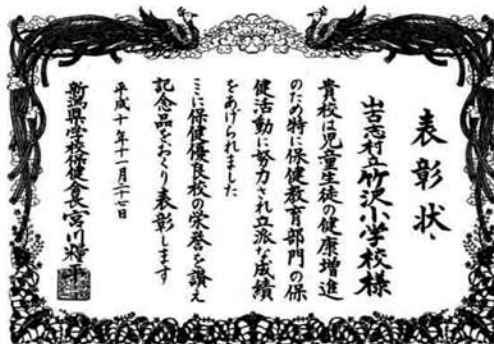 表彰状
山古志村立竹沢小学校様
貴校は児童生徒の健康増進
のため特に保健教育部門の保
健活動に努力され立派な成績
をあげられました
ここに保健優良校の栄誉を讃え
記念品をおくり表彰します
平成十年十一月二十七日
新潟県学校保健会長宮川糧平